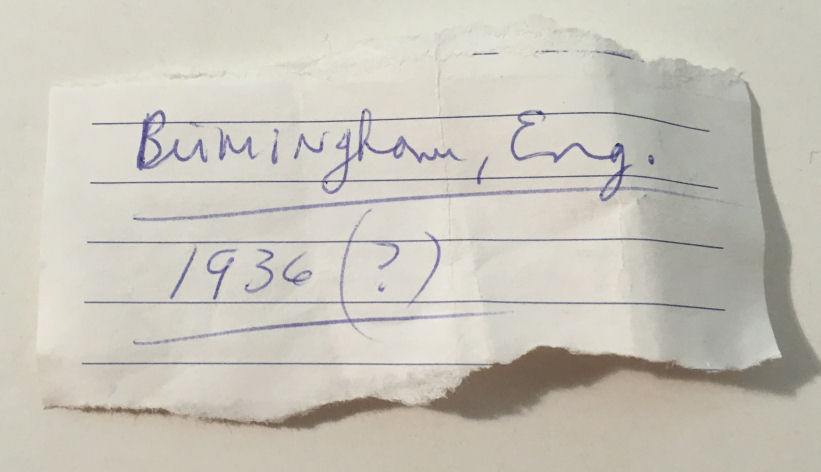 Birmingham, Eng.
1936 (?)